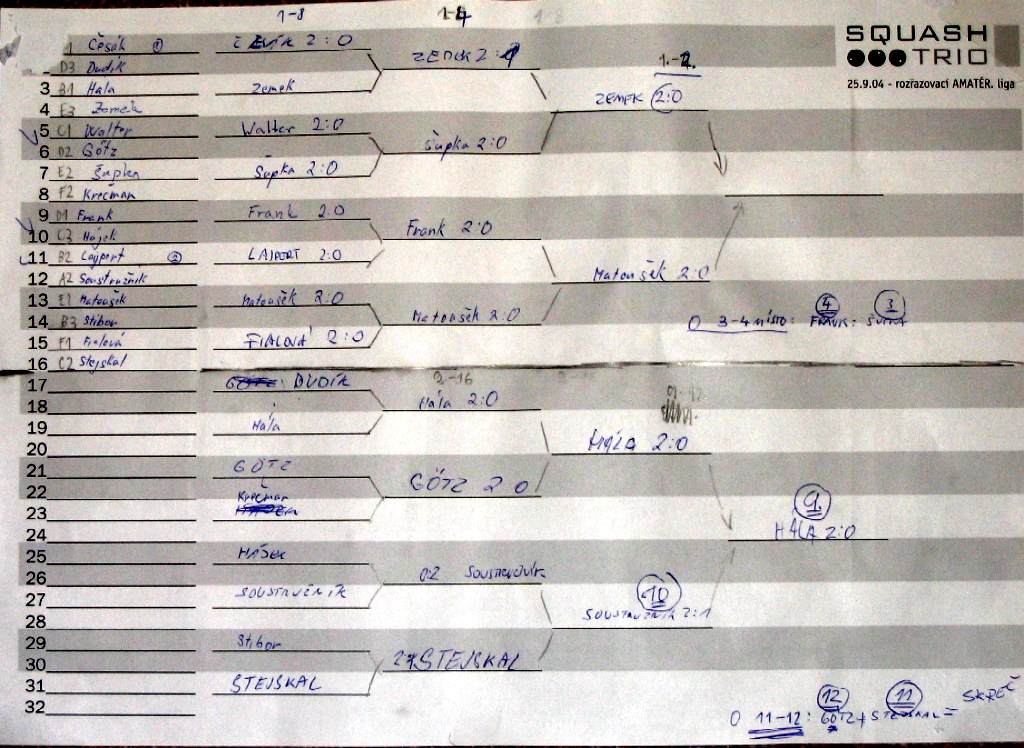 1-8
1-4
1-8
SQUASH
TRIO
25.9.04 - rozřazovací AMATÉR. liga
1 Česák 1
D3 Dudík
3 B1 Hála
4 E3 Zemek
5 C1 Walter
6 D2 Götz
7 E2 Šupka
8 F2 Krečman
9 D1 Frank
10 C3 Hájek
11 B2 Lajpert 2
12 A2 Soustružník
13 E1 Matoušek
14 B3 Stibor
15 F1 Fialová
16 C2 Stejskal
17
18
19
20
21
22
23
24
25
26
27
28
29
30
31
32
2:0
Zemek
Walter 2:0
Šupka 2:0
Frank 2:0
LAJPERT 2:0
Matoušek 2:0
FIALOVÁ 2:0
DUDÍK
Hála
GÖTZ
Krečman
HÁJEK
SOUSTRUŽNÍK
Stibor
STEJSKAL
ZEMEK 2:1
Šupka 2:0
Frank 2:0
Matoušek 2:0
9-16
Hála 2:0
GÖTZ 2 0
0:2 SOUSTRUŽNÍK
STEJSKAL
1.-2.
ZEMEK 2:0
Matoušek 2:0
HÁLA 2:0
10
SOUSTRUŽNÍK 2:1
4 3
O 3-4 MÍSTO: FRANK: ŠUPKA
9
HÁLA 2:0
12 11
O 11-12: GÖTZ STEJSKAL = SKREČ